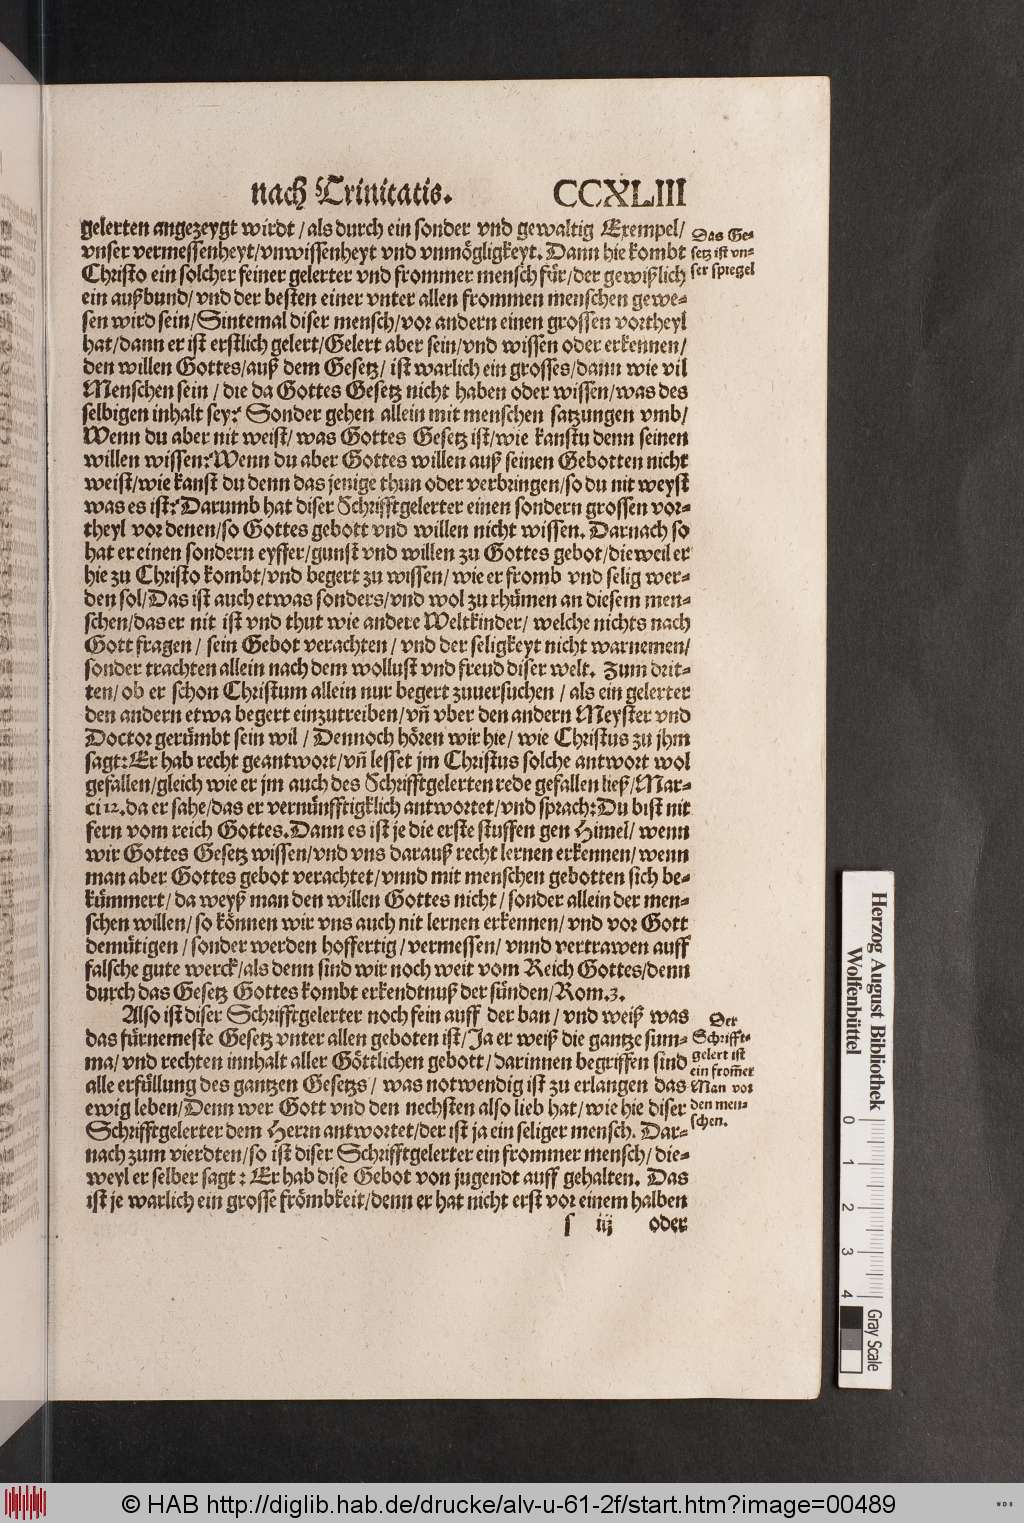 nach Trinitatis. CCXLIII
gelerten angezeygt wirdt / als durch ein sonder vnd gewaltig Exempel /
vnser vermessenheyt / vnwissenheyt vnd vnmögligkeyt. Dann hie kombt
Christo ein solcher feiner gelerter vnd frommer mensch für / der gewißlich
ein außbund / vnd der besten einer vnter allen frommen menschen gewe-
sen wird sein / Sintemal diser mensch / vor andern einen grossen vortheyl
hat / dann er ist erstlich gelert / Gelert aber sein / vnd wissen oder erkennen /
den willen Gottes / auß dem Gesetz / ist warlich ein grosses / dann wie vil
Menschen sein / die da Gottes Gesetz nicht haben oder wissen / was des
selbigen inhalt sey? Sonder gehen allein mit menschen satzungen vmb /
Wenn du aber nit weist / was Gottes Gesetz ist / wie kanstu denn seinen
willen wissen? Wenn du aber Gottes willen auß seinen Gebotten nicht
weist / wie kanst du denn das jenige thun oder verbringen / so du nit weyst
was es ist? Darumb hat diser Schrifftgelerter einen sondern grossen vor-
theyl vor denen / so Gottes gebott vnd willen nicht wissen. Darnach so
hat er einen sondern eyffer / gunst vnd willen zu Gottes gebot / die weil er
hie zu Christo kombt / vnd begert zu wissen / wie er fromb vnd selig wer-
den sol / Das ist auch etwas sonders / vnd wol zu rhümen an diesem men-
schen / das er nit ist vnd thut wie andere Weltkinder / welche nichts nach
Gott fragen / sein Gebot verachten / vnd der seligkeyt nicht warnemen /
sonder trachten allein nach dem wollust vnd freud diser welt. Zum drit-
ten / ob er schon Christum allein nur begert zuuersuchen / als ein gelerter
den andern etwa begert einzutreiben / vñ vber den andern Meyster vnd
Doctor gerümbt sein wil / Dennoch hören wir hie / wie Christus zu jhm
sagt: Er hab recht geantwort / vñ lesset jm Christus solche antwort wol
gefallen / gleich wie er jm auch des Schrifftgelerten rede gefallen ließ / Mar-
ci 12. da er sahe / das er vernünfftigklich antwortet / vnd sprach: Du bist nit
fern vom reich Gottes. Dann es ist je die erste stuffen gen Himel / wenn
wir Gottes Gesetz wissen / vnd vns darauß recht lernen erkennen / wenn
man aber Gottes gebot verachtet / vnnd mit menschen gebotten sich be-
kümmert / da weyß man den willen Gottes nicht / sonder allein der men-
schen willen / so können wir vns auch nit lernen erkennen / vnd vor Gott
demütigen / sonder werden hoffertig / vermessen / vnnd vertrawen auff
falsche gute werck / als denn sind wir noch weit vom Reich Gottes / denn
durch das Gesetz Gottes kombt erkendtnuß der sünden / Rom. 3.
Also ist diser Schrifftgelerter noch fein auff der ban / vnd weiß was
das fürnemeste Gesetz vnter allen geboten ist / Ja er weiß die gantze sum-
ma / vnd rechten innhalt aller Göttlichen gebott / darinnen begriffen sind
alle erfüllung des gantzen Gesetzs / was notwendig ist zu erlangen das
ewig leben / Denn wer Gott vnd den nechsten also lieb hat / wie hie diser
Schrifftgelerter dem Herrn antwortet / der ist ja ein seliger mensch. Dar-
nach zum vierdten / so ist diser Schrifftgelerter ein frommer mensch / die-
weyl er selber sagt: Er hab dise Gebot von jugendt auff gehalten. Das
ist je warlich ein grosse frömbkeit / denn er hat nicht erst vor einem halben
s iij oder
Das Ge-
setz ist vn-
ser spiegel
Der
Schrifft-
gelert ist
ein from̃er
Man vor
den men-
schen.
Herzog August Bibliothek
Wolfenbüttel
0 1 2 3 4
Gray Scale
© HAB http://diglib.hab.de/drucke/alv-u-61-2f/start.htm?image=00489
WDB